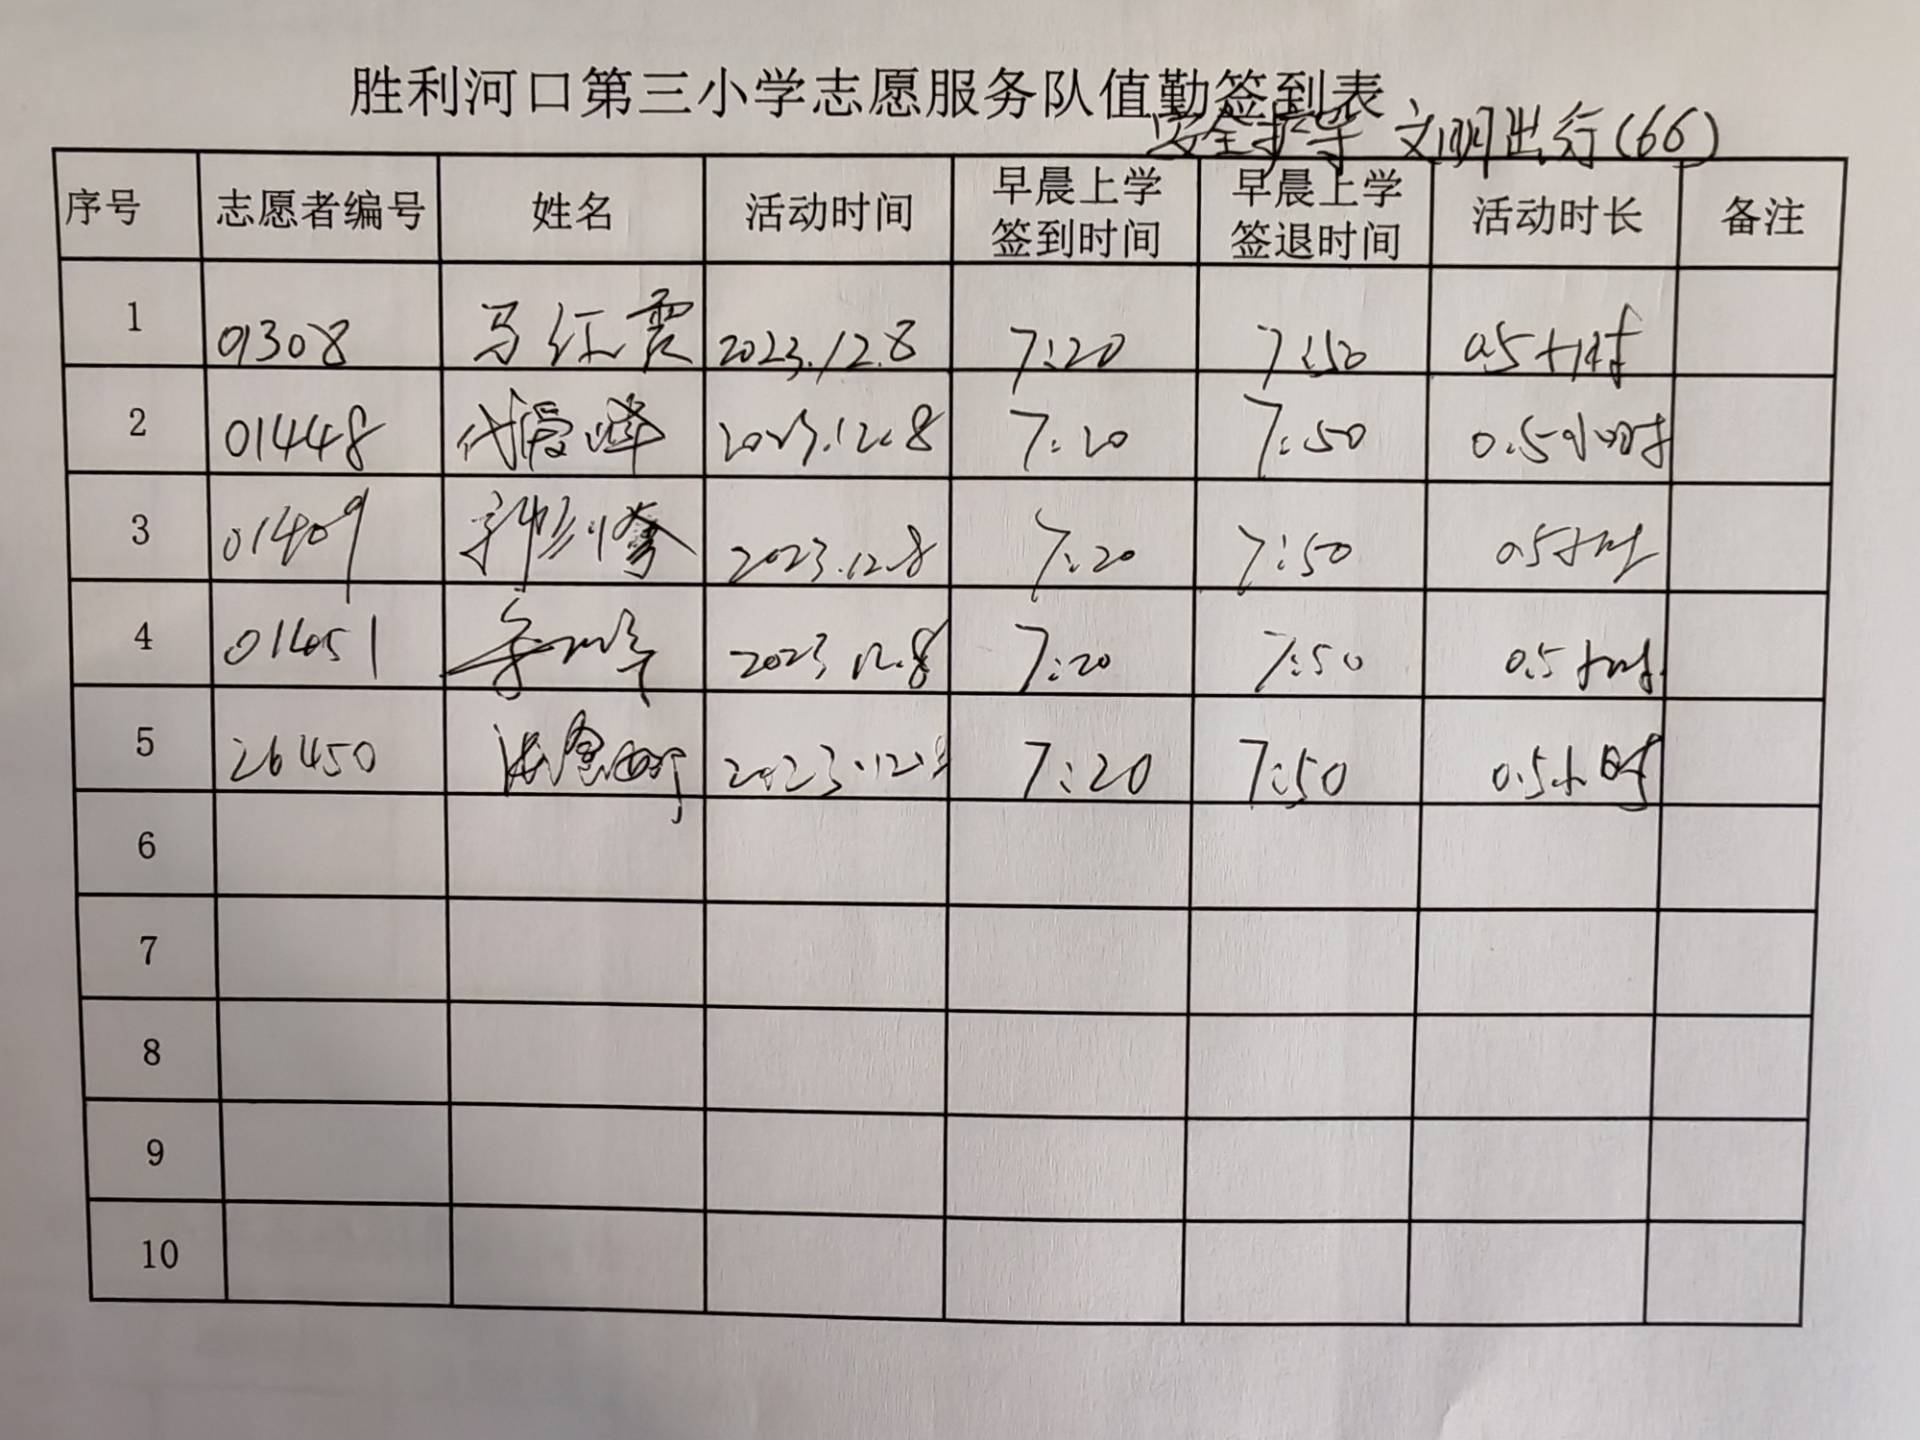 胜利河口第三小学志愿服务队值勤签到表
安全护导 文明出行(66)
序号 志愿者编号 姓名 活动时间 早晨上学签到时间 早晨上学签退时间 活动时长 备注
1 01308 马红霞 2023.12.8 7:20 7:50 0.5小时
2 01448 代爱 2023.12.8 7:20 7:50 0.5小时
3 01409 2023.12.8 7:20 7:50 0.5小时
4 2023.12.8 7:20 7:50 0.5小时
5 26450 2023.12.8 7:20 7:50 0.5小时
6
7
8
9
10